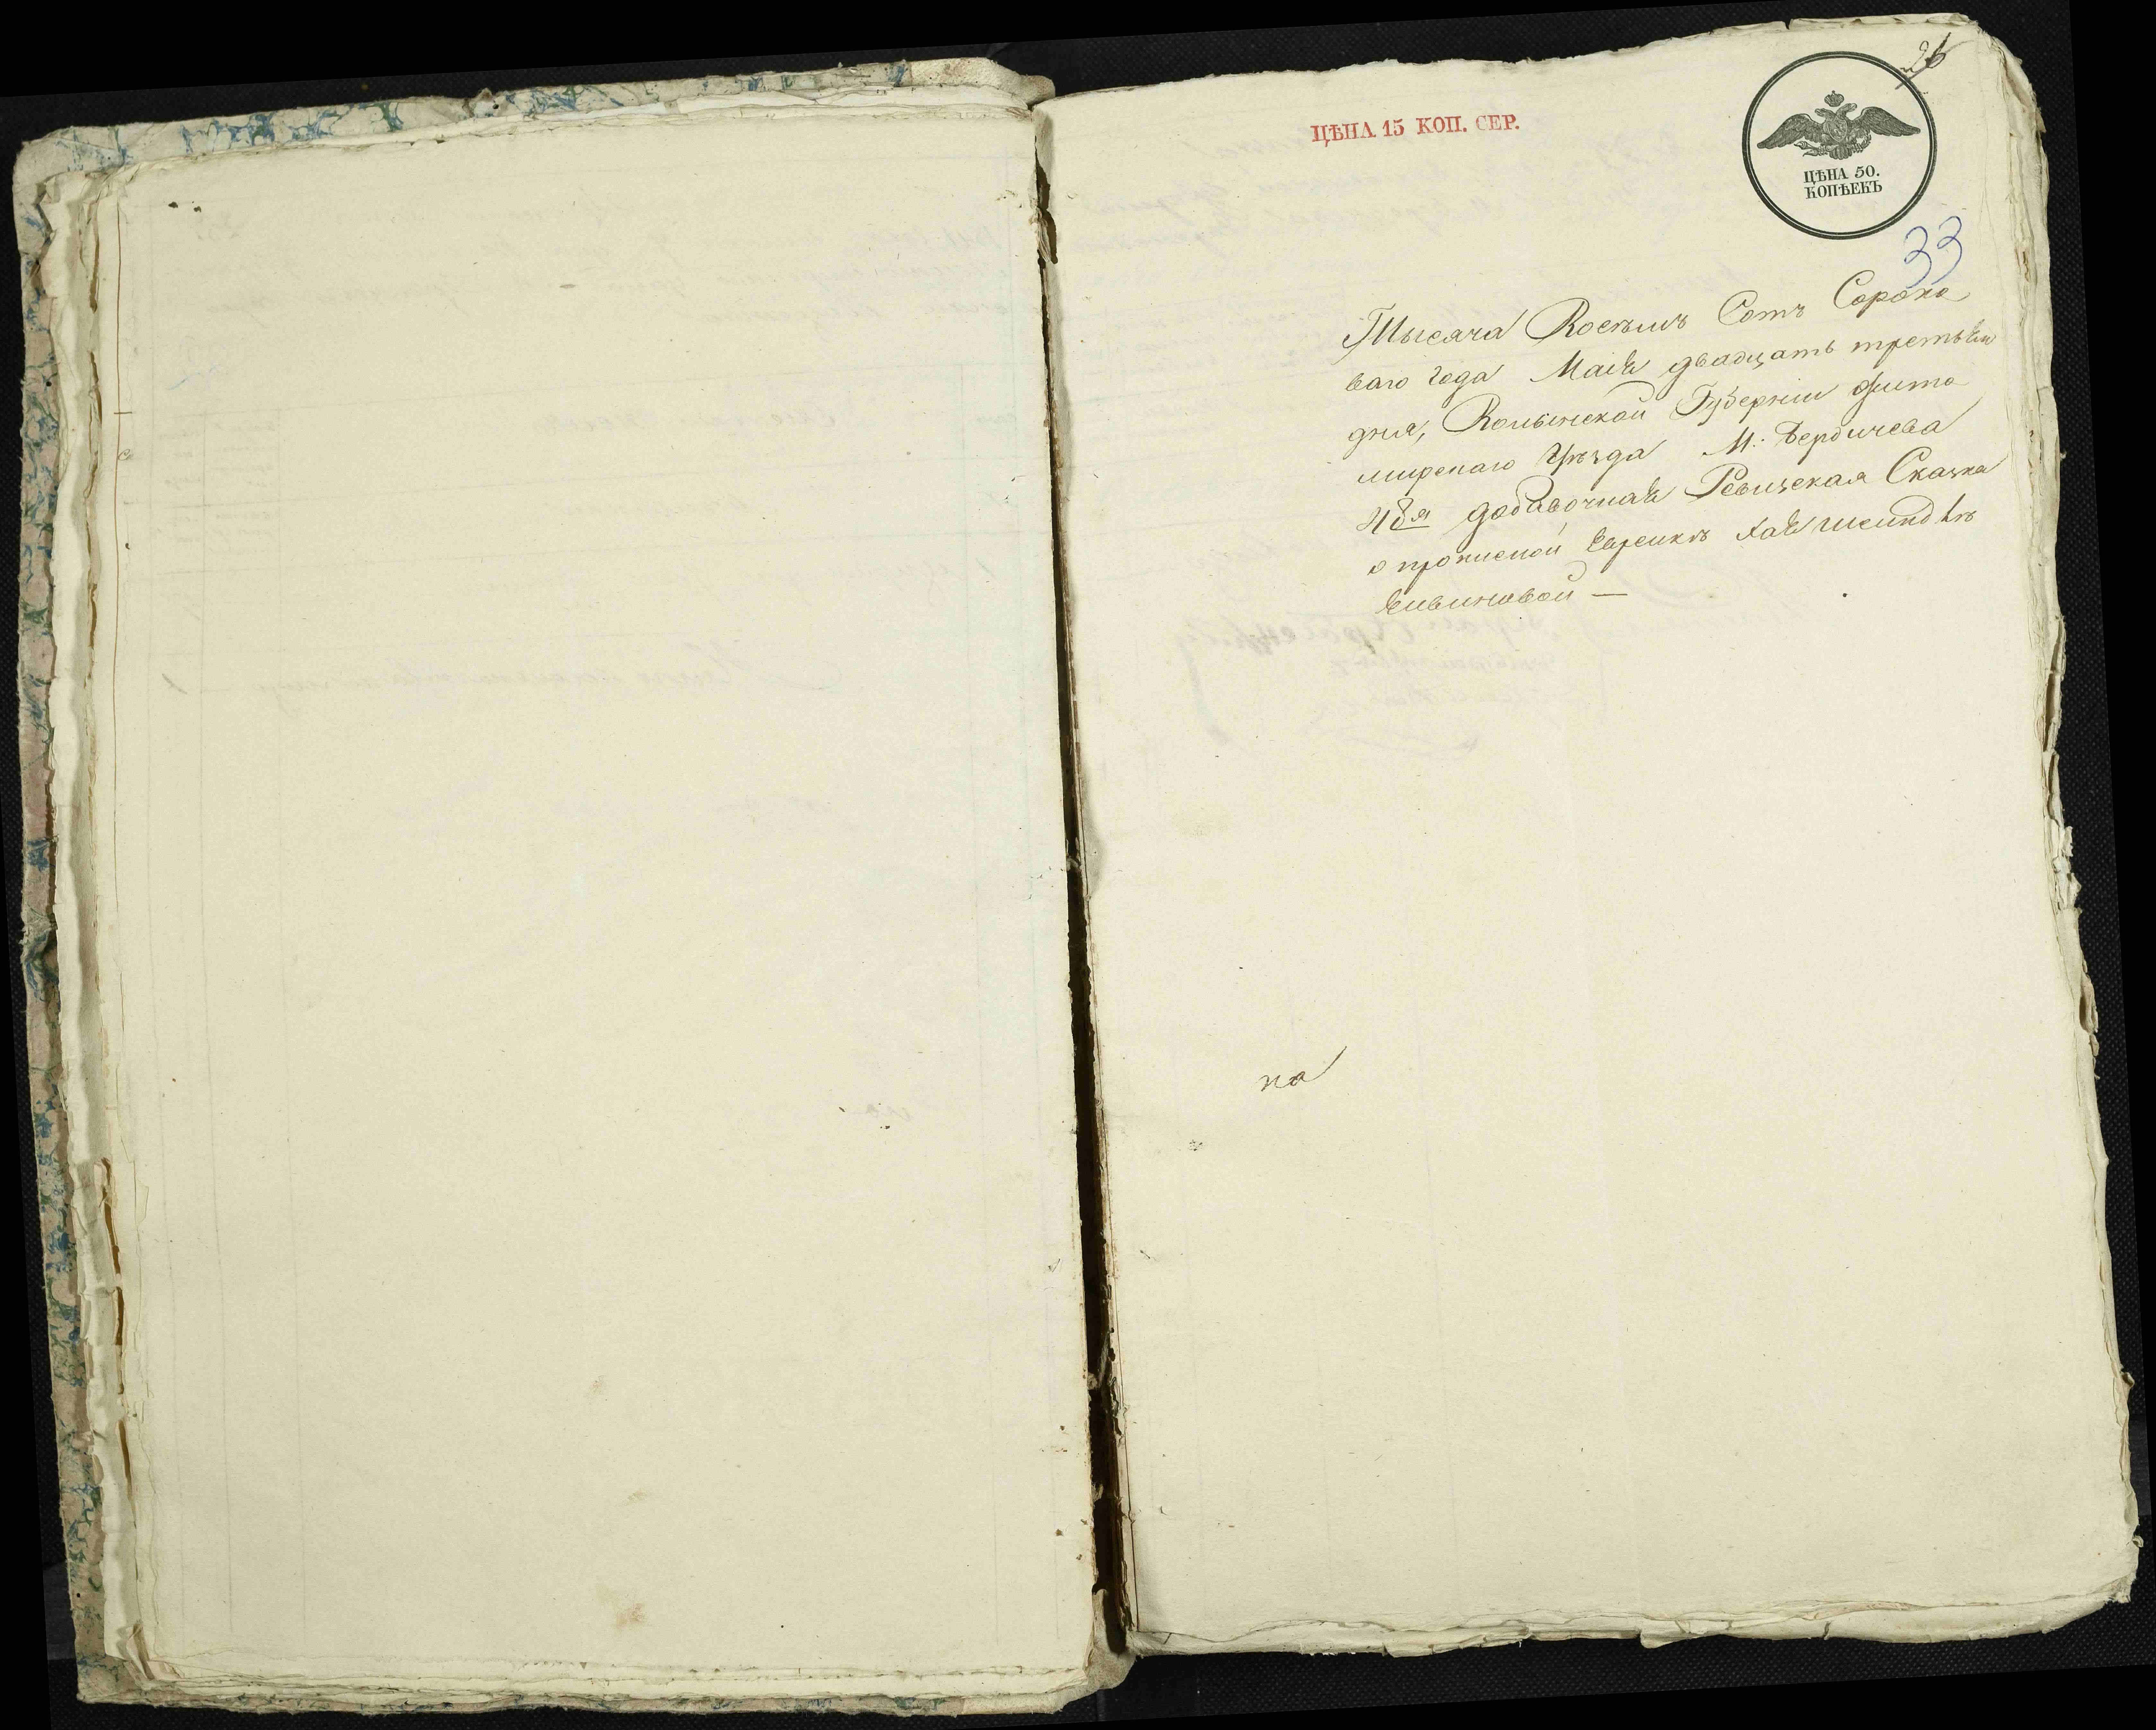 26
ЦѢНА 15 КОП. СЕР.
ЦѢНА 50.
КОПѢЕКЪ
33
Тысяча Восемъ Сотъ Сорокъ
ваго года Маія двадцать третьяго
дня, Волынской Губерніи Жито
мирскаго Уѣзда М: Бердичева
48я добавочная Ревизская Сказка
о прописной Еврейкѣ
на